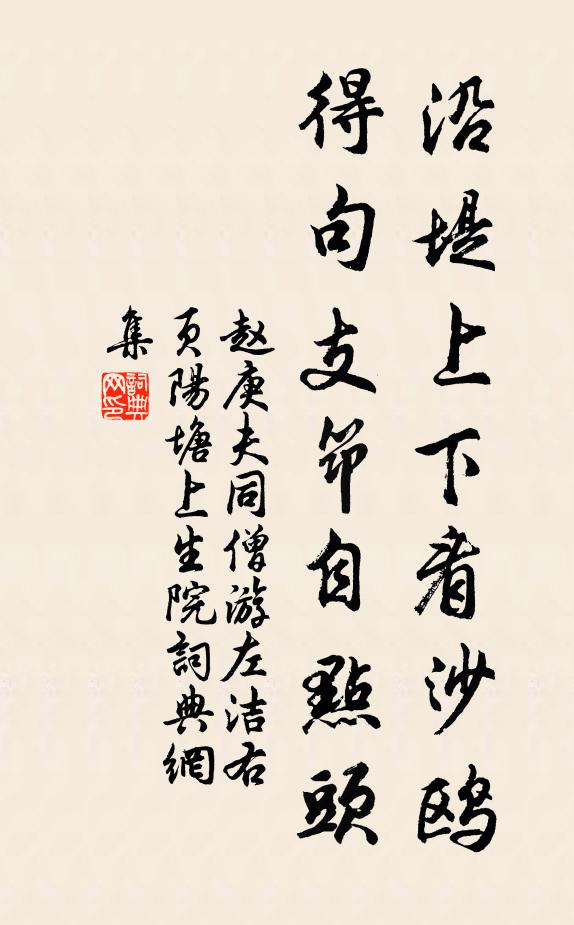 沿堤上下看沙鸥
得句支筇自點頭
赵庚夫同僧游左洁右
页陽塘上生院詞典網
集
詞典網印